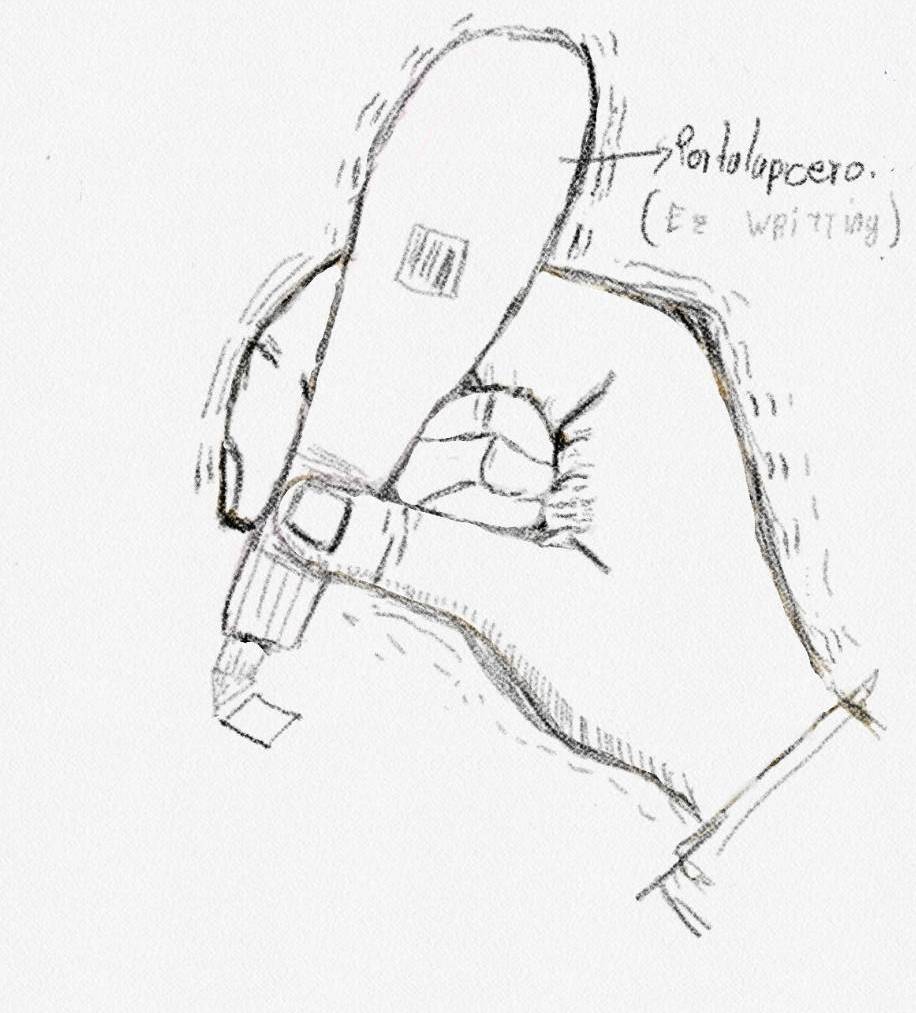 Portalapcero.
(Ez Wpitting)